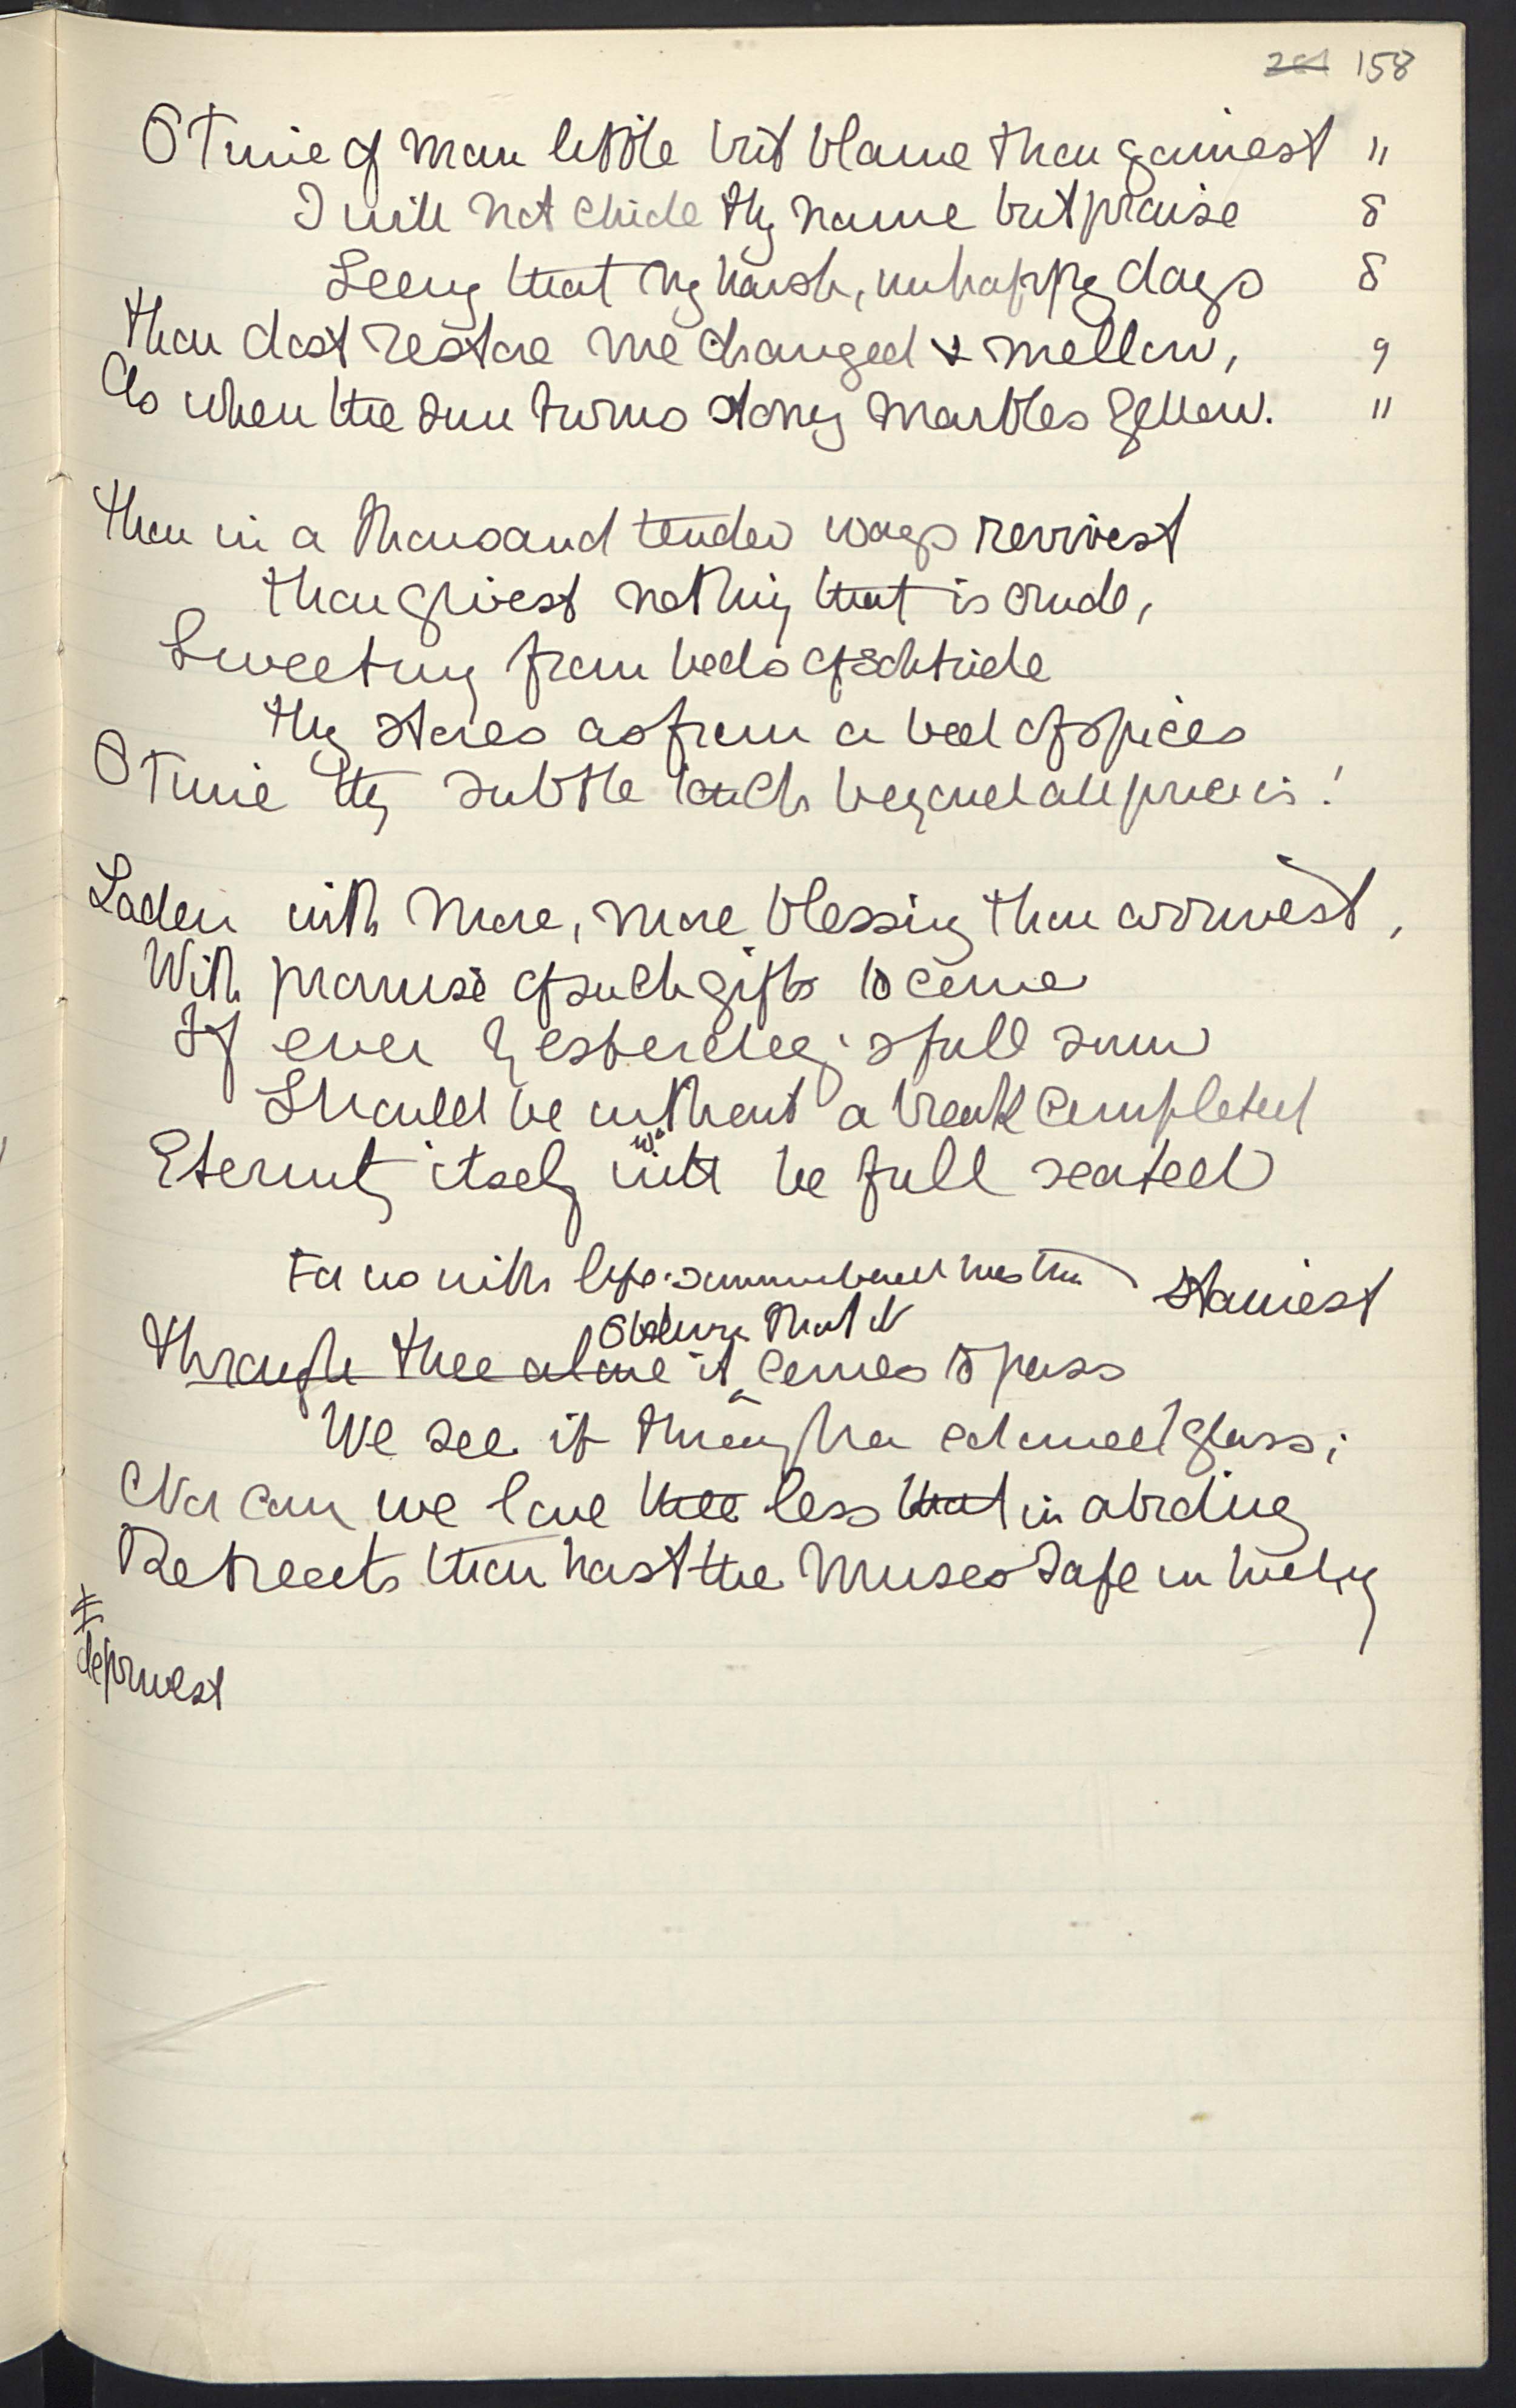 158
O Time of man little but blame thou gainest 11
I will not chide thy name but praise 8
Seeing that my harsh, unhappy days 8
Thou dost restore me changed & mellow, 9
As when the sun turns stony marbles yellow. 11
Thou in a thousand tender ways revivest
Thou givest nothing that is crude,
Sweeting from beds of solitude
Thy stores as from a bed of spices
O Time thy subtle touch beyond all price is!
Laden with more, more blessing thou arrivest,
With promise of such gifts to come
If ever yesterday's full sum
Should be without a break completed
Eternity itself will be full seated
For us with life's hast thou stainest
Through thee alone it Obscure that it comes to pass
We see it through a coloured glass;
Nor can we love thee less that in abiding
Retreats thou hast the Muses safe in hiding
≠
deprivest